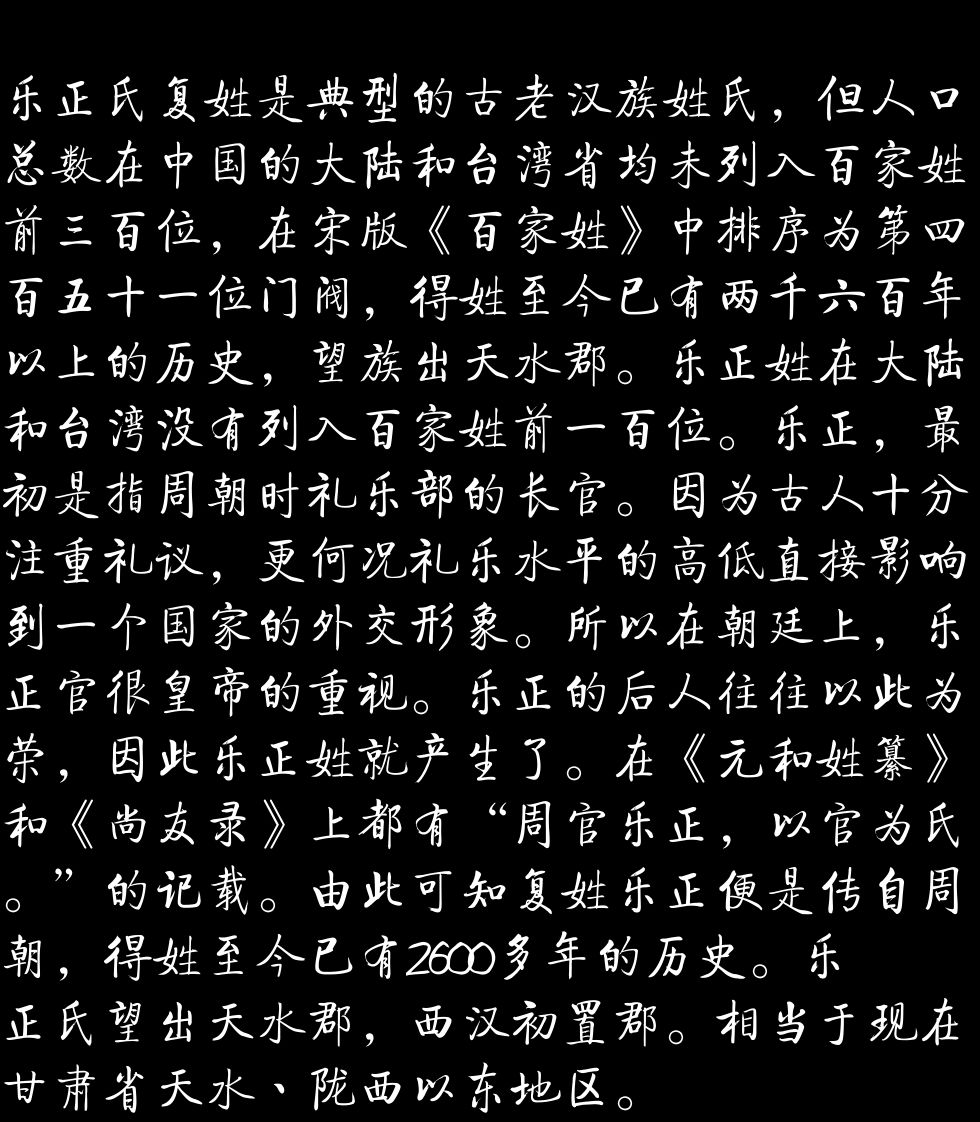 乐正氏复姓是典型的古老汉族姓氏，但人口
总数在中国的大陆和台湾省均未列入百家姓
前三百位，在宋版《百家姓》中排序为第四
百五十一位门阀，得姓至今已有两千六百年
以上的历史，望族出天水郡。乐正姓在大陆
和台湾没有列入百家姓前一百位。乐正，最
初是指周朝时礼乐部的长官。因为古人十分
注重礼议，更何况礼乐水平的高低直接影响
到一个国家的外交形象。所以在朝廷上，乐
正官很皇帝的重视。乐正的后人往往以此为
荣，因此乐正姓就产生了。在《元和姓纂》
和《尚友录》上都有“周官乐正，以官为氏
。”的记载。由此可知复姓乐正便是传自周
朝，得姓至今已有2600多年的历史。乐
正氏望出天水郡，西汉初置郡。相当于现在
甘肃省天水、陇西以东地区。